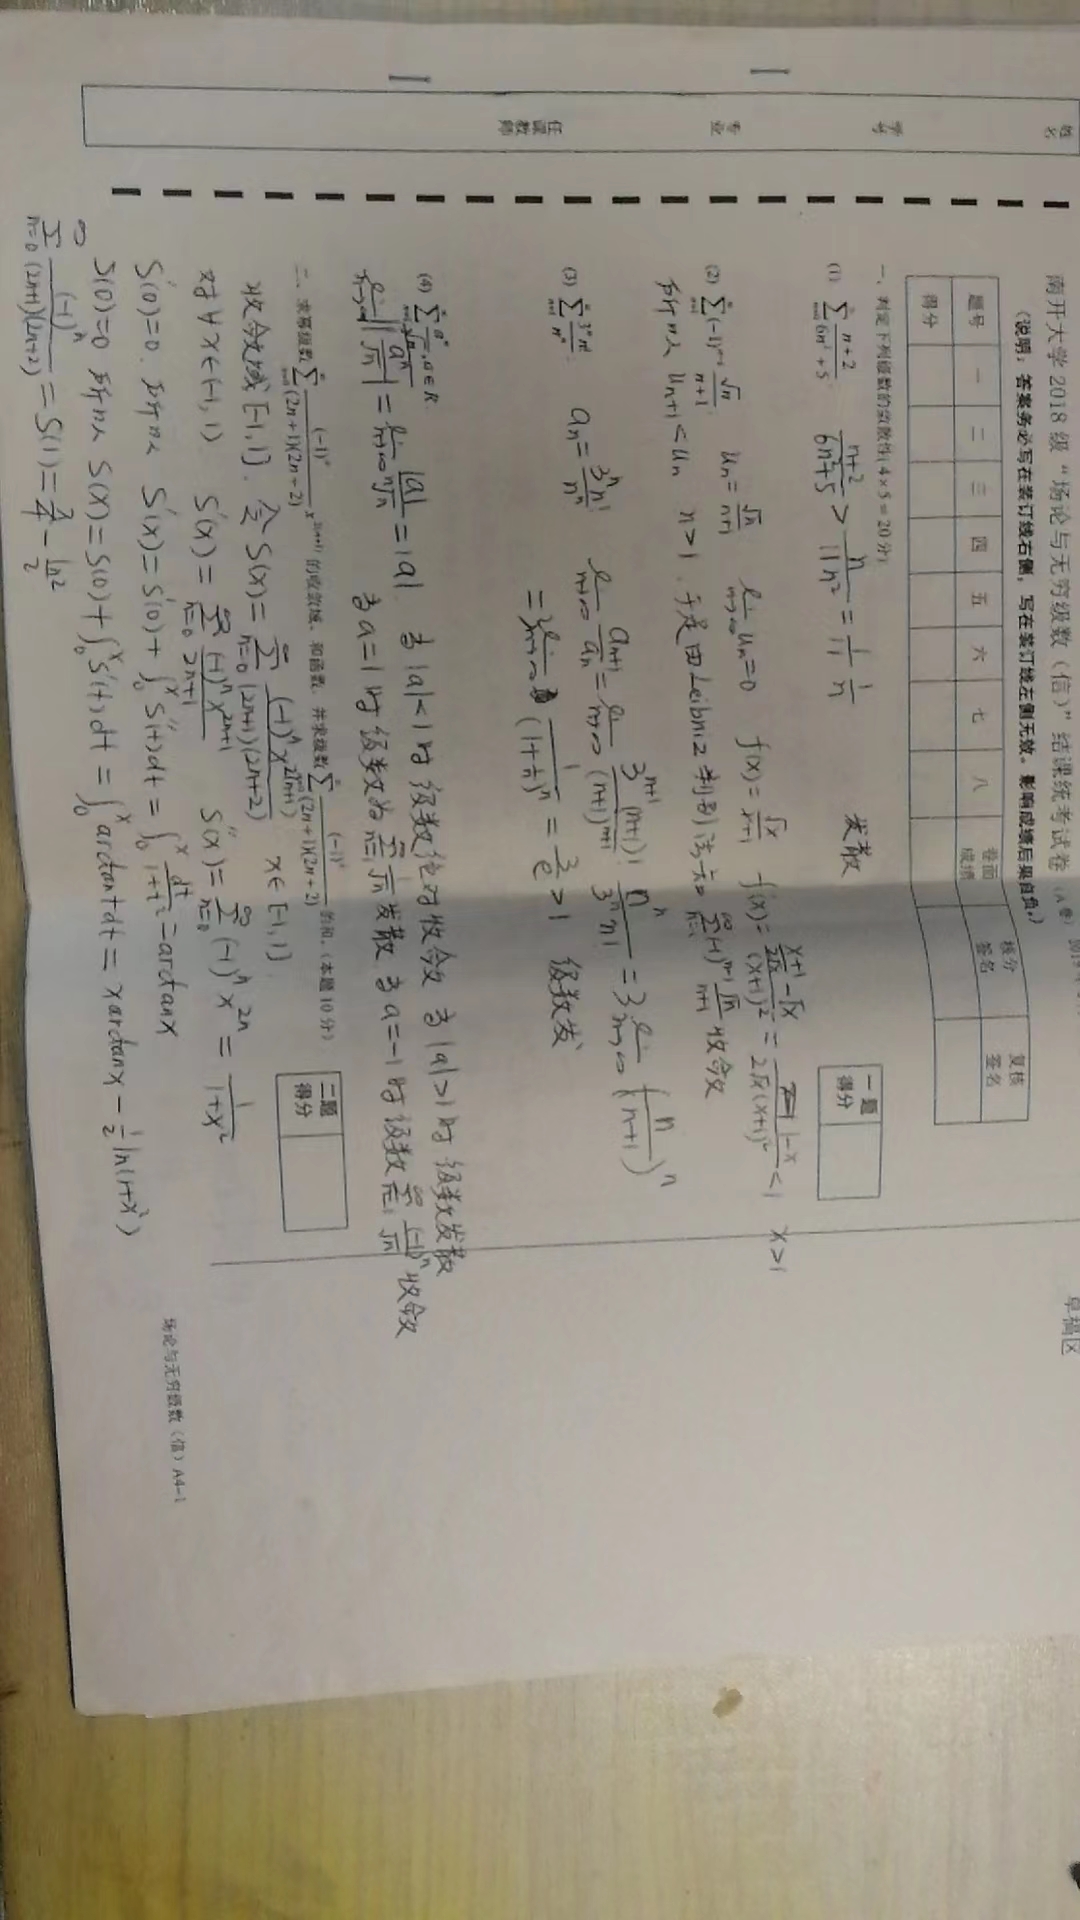 南开大学 2018 级“场论与无穷级数（信）”结课统考试卷 (A卷)
草稿区
（说明：答案务必写在装订线右侧，写在装订线左侧无效。影响成绩后果自负。）
题号 一 二 三 四 五 六 七 八 卷面成绩 核分签名 复核签名
得分
姓名
学号
专业
任课教师
一、判定下列级数的敛散性(4×5=20分)
一题得分
(1) ∑_{n=1}^{∞} (n+2)/(6n²+5) (n+2)/(6n²+5) > n/(11n²) = 1/11 1/n 发散
(2) ∑_{n=1}^{∞} (-1)^{n-1} √n/(n+1) u_n = √n/(n+1) lim_{n→∞} u_n = 0 f(x) = √x/(x+1) f'(x) = ((x+1)/(2√x) - √x)/(x+1)² = (1-x)/(2√x(x+1)²) < 1 x>1
所以 u_{n+1} < u_n n>1. 于是由Leibniz判别法知 ∑_{n=1}^{∞} (-1)^{n-1} √n/(n+1) 收敛
(3) ∑_{n=1}^{∞} 3ⁿn!/nⁿ. a_n = 3ⁿn!/nⁿ lim_{n→∞} a_{n+1}/a_n = lim_{n→∞} 3^{n+1}(n+1)!/(n+1)^{n+1} nⁿ/(3ⁿ n!) = 3 lim_{n→∞} (n/(n+1))ⁿ
= 3 lim_{n→∞} 1/(1+1/n)ⁿ = 3/e > 1 级数发
(4) ∑_{n=1}^{∞} aⁿ/√n, a∈R.
lim_{n→∞} ⁿ√|aⁿ/√n| = lim_{n→∞} |a|/ⁿ√√n = |a|. 当|a|<1时 级数绝对收敛 当|a|>1时 级数发散
当a=1时级数为 ∑_{n=1}^{∞} 1/√n 发散. 当a=-1时级数 ∑_{n=1}^{∞} (-1)ⁿ/√n 收敛
二、求幂级数 ∑_{n=0}^{∞} (-1)ⁿ/((2n+1)(2n+2)) x^{2(n+1)} 的收敛域、和函数，并求级数 ∑_{n=0}^{∞} (-1)ⁿ/((2n+1)(2n+2)) 的和.（本题10分）
二题得分
收敛域[-1,1]. 令 S(x) = ∑_{n=0}^{∞} (-1)ⁿx^{2(n+1)}/((2n+1)(2n+2)) x∈[-1,1].
对∀x∈(-1,1) S'(x) = ∑_{n=0}^{∞} (-1)ⁿx^{2n+1}/(2n+1) S''(x) = ∑_{n=0}^{∞} (-1)ⁿ x^{2n} = 1/(1+x²)
S'(0)=0. 所以 S'(x) = S'(0) + ∫₀ˣ S''(t)dt = ∫₀ˣ dt/(1+t²) = arctanx
S(0)=0 所以 S(x) = S(0) + ∫₀ˣ S'(t)dt = ∫₀ˣ arctant dt = xarctanx - 1/2 ln(1+x²)
∑_{n=0}^{∞} (-1)ⁿ/((2n+1)(2n+2)) = S(1) = π/4 - ln2/2
场论与无穷级数（信）A4-1